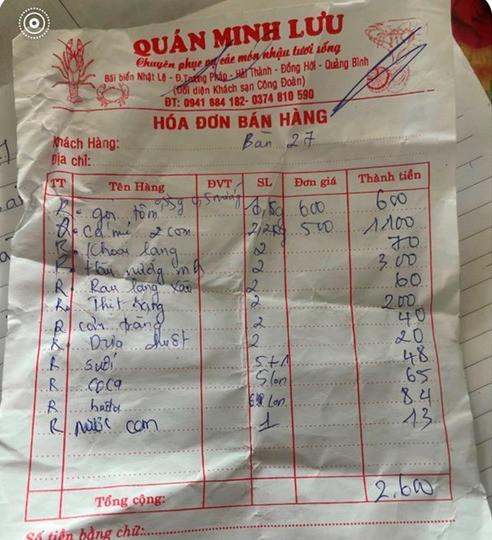 QUÁN MINH LƯU
Chuyên phục vụ các món nhậu tươi sống
Bãi biển Nhật Lệ - Đ.Trương Pháp - Hải Thành - Đồng Hới - Quảng Bình
(Đối diện Khách sạn Công Đoàn)
ĐT: 0941 684 182- 0374 810 590
HÓA ĐƠN BÁN HÀNG
Khách Hàng: Bàn 27
Địa chỉ:
TT Tên Hàng ĐVT SL Đơn giá Thành tiền
R - gỏi tôm 600 600
R - cá mú 2 con 2,2kg 500 1100
R - Khoai lang 2 70
R - Hàu nướng mh 2 300
R Rau lang xào 2 60
R Thịt rang 2 200
R cơm trắng 2 40
R Dưa chuột 2 20
R suối 5+1 48
R coca 5 lon 65
R bia lon 84
R nước cam 1 13
Tổng cộng: 2.600
Số tiền bằng chữ: